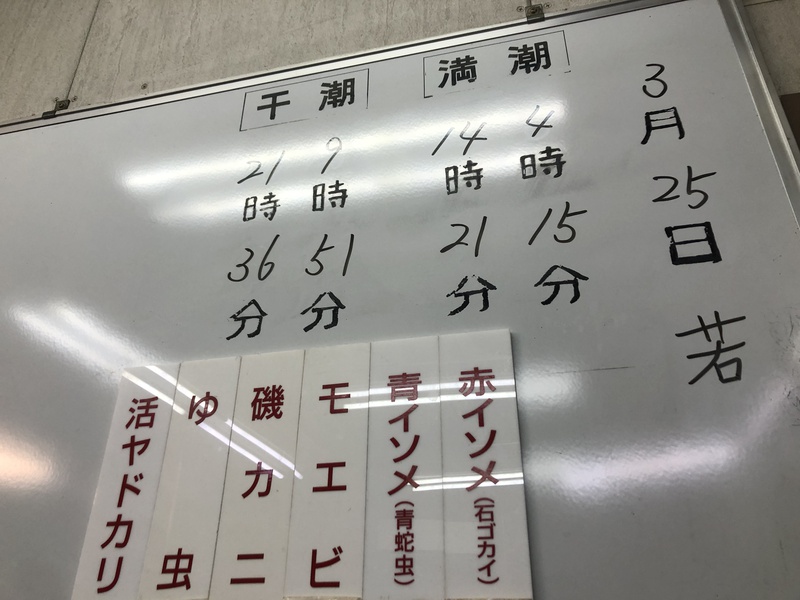 3月25日 若
満潮
4時15分
14時21分
干潮
9時51分
21時36分
赤イソメ(石ゴカイ)
青イソメ(青蛇虫)
モエビ
磯カニ
ゆ虫
活ヤドカリ